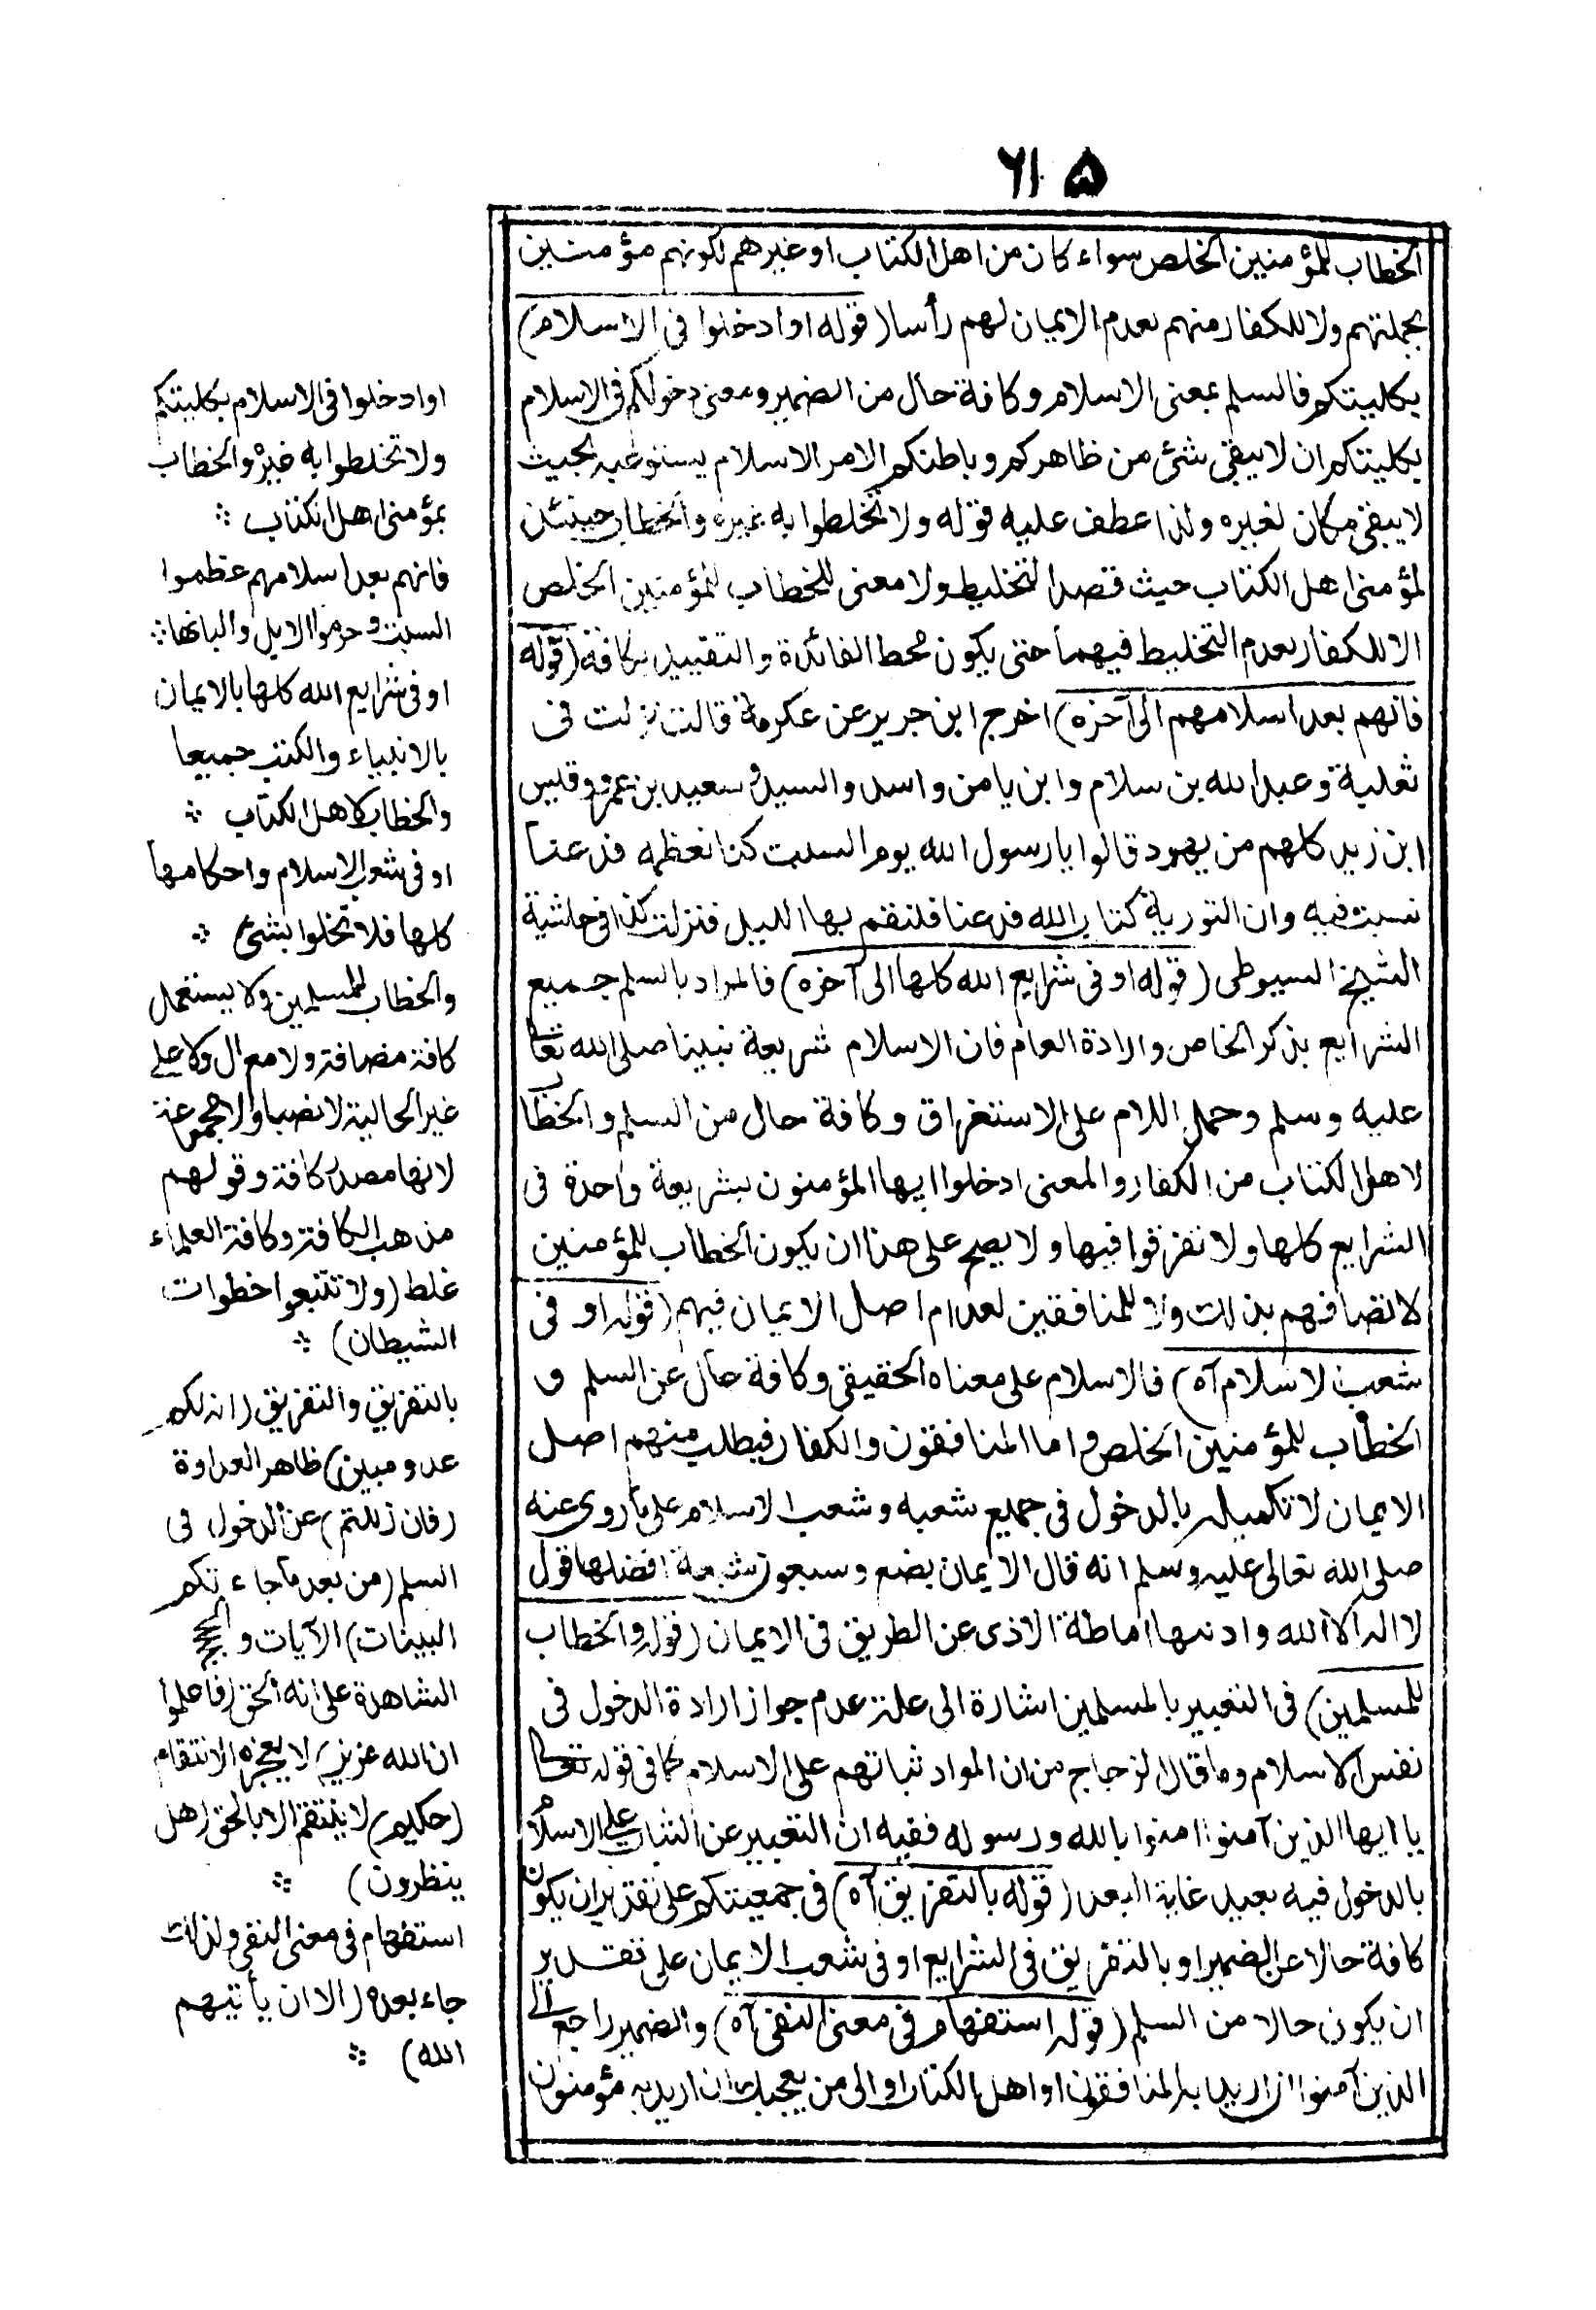 ٦١٥
الخطاب للمؤمنين الخلص سواء كان من اهل الكتاب او غيرهم لكونهم مؤمنين
بجملتهم ولا للكفار منهم بعدم الايمان لهم رأسا (قوله او ادخلوا فى الاسلام)
بكليتكم فالسلم بمعنى الاسلام وكافة حال من الضمير ومعنى دخولكم فى الاسلام
بكليتكم ان لا يبقى شئ من ظاهركم وباطنكم الا مر الاسلام يستوعبه بحيث
لا يبقى مكان لغيره ولذا عطف عليه قوله ولا تخلطوا به غيره والخطاب حينئذ
لمؤمنى اهل الكتاب حيث قصد التخليط ولا معنى للخطاب للمؤمنين الخلص
الا للكفار بعدم التخليط فيهما حتى يكون محط الفائدة والتقييد بكافة (قوله
فانهم بعد اسلامهم الى آخره) اخرج ابن جرير عن عكرمة قالت نزلت فى
ثعلبة وعبد الله بن سلام وابن يامن واسد والسيد وسعيد بن عمرو وقيس
ابن زيد كلهم من يهود قالوا يا رسول الله يوم السبت كنا نعظمه فدعنا
نسبت فيه وان التورية كتاب الله فدعنا فلنقم بها الليل فنزلت كذا فى حاشية
الشيخ السيوطى (قوله او فى شرايع الله كلها الى آخره) فالمراد بالسلم جميع
الشرايع بذكر الخاص وارادة العام فان الاسلام شريعة نبينا صلى الله تعا
عليه وسلم وحمل اللام على الاستغراق وكافة حال من السلم والخطاب
لاهل الكتاب من الكفار والمعنى ادخلوا ايها المؤمنون بشريعة واحدة فى
الشرايع كلها ولا تفرقوا فيها ولا يصح على هذا ان يكون الخطاب للمؤمنين
لاتصافهم بذلك ولا للمنافقين لعدم اصل الايمان فيهم (قوله او فى
شعب الاسلام آه) فالاسلام على معناه الحقيقى وكافة حال عن السلم و
الخطاب للمؤمنين الخلص واما المنافقون والكفار فيطلب منهم اصل
الايمان لا تكميله بالدخول فى جميع شعبه وشعب الاسلام على ما روى عنه
صلى الله تعالى عليه وسلم انه قال الايمان بضع وسبعون شعبة افضلها قول
لا اله الا الله وادنها اماطة الاذى عن الطريق فى الايمان (قوله والخطاب
للمسلمين) فى التعبير بالمسلمين اشارة الى علة عدم جواز ارادة الدخول فى
نفس الاسلام وما قال الزجاج من ان المواد ثباتهم على الاسلام كما فى قوله تعا
يا ايها الذين آمنوا امنوا بالله ورسوله ففيه ان التعبير عن الثبات على الاسلام
بالدخول فيه بعيد غاية البعد (قوله بالتفريق آه) فى جمعيتكم على تقدير ان يكون
كافة حالا عن الضمير او بالتفريق فى الشرايع او فى شعب الايمان على تقدير
ان يكون حالا من السلم (قوله استفهام فى معنى النفى آه) والضمير راجع الى
الذين آمنوا ان اريد بالمنافقون او اهل الكتاب او الى من يعجبك ان اريد به مؤمنون
او ادخلوا فى الاسلام بكليتكم
ولا تخلطوا به غيره والخطاب
بمؤمنى اهل الكتاب
فانهم بعد اسلامهم عظموا
السبت وحرموا الابل والبانها
او فى شرايع الله كلها بالايمان
بالانبياء والكتب جميعا
والخطاب لاهل الكتاب
او فى شعب الاسلام واحكامها
كلها فلا تخلوا بشئ
والخطاب للمسلمين ولا يستعمل
كافة مضافة ولا مع ال ولا على
غير الحالية لا نصبا ولا مجموعة
لانها مصدر كافة وقولهم
مذهب الكافة وكافة العلماء
غلط (ولا تتبعوا خطوات
الشيطان)
بالتفريق والتفريق (انه لكم
عدو مبين) ظاهر العداوة
(فان زللتم) عن الدخول فى
السلم (من بعد ما جاءتكم
البينات) الآيات والحجج
الشاهدة على انه الحق (فاعلموا
ان الله عزيز) لا يعجزه الانتقام
(حكيم) لا ينتقم الا بالحق (هل
ينظرون)
استفهام فى معنى النفى ولذلك
جاء بعده (الا ان يأتيهم
الله)